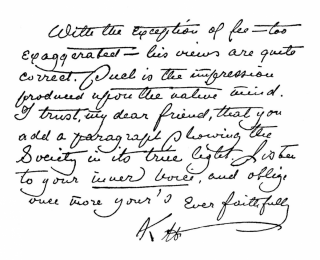 With the exception of fee — too
exaggerated — his views are quite
correct. Such is the impression
produced upon the native mind.
I trust, my dear friend, that you
add a paragraph showing the
Society in its true light. Listen
to your inner voice, and oblige
once more your's Ever faithfully
K H